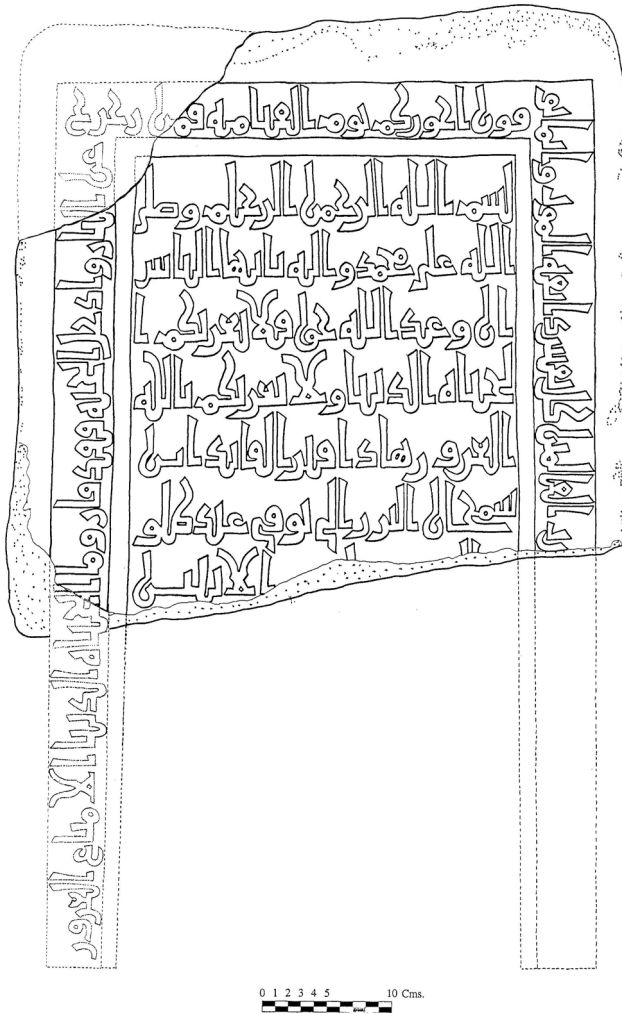 رب العالمين كل نفس ذايقة الموت وانما تو
فون اجوركم يوم القيامة فمن زحزح
عن النار وادخل الجنة فقد فاز وما الحياة الدنيا الا متاع الغرور
بسم الله الرحمن الرحيم وصلى
الله على محمد واله يايها الناس
ان وعد الله حق فلا تغرنكم ا
لحياة الدنيا ولا يغرنكم بالله
الغرور هاذا قبر القايد ابن
سمحان توفي عند طلو
الاثنين
0 1 2 3 4 5 10 Cms.